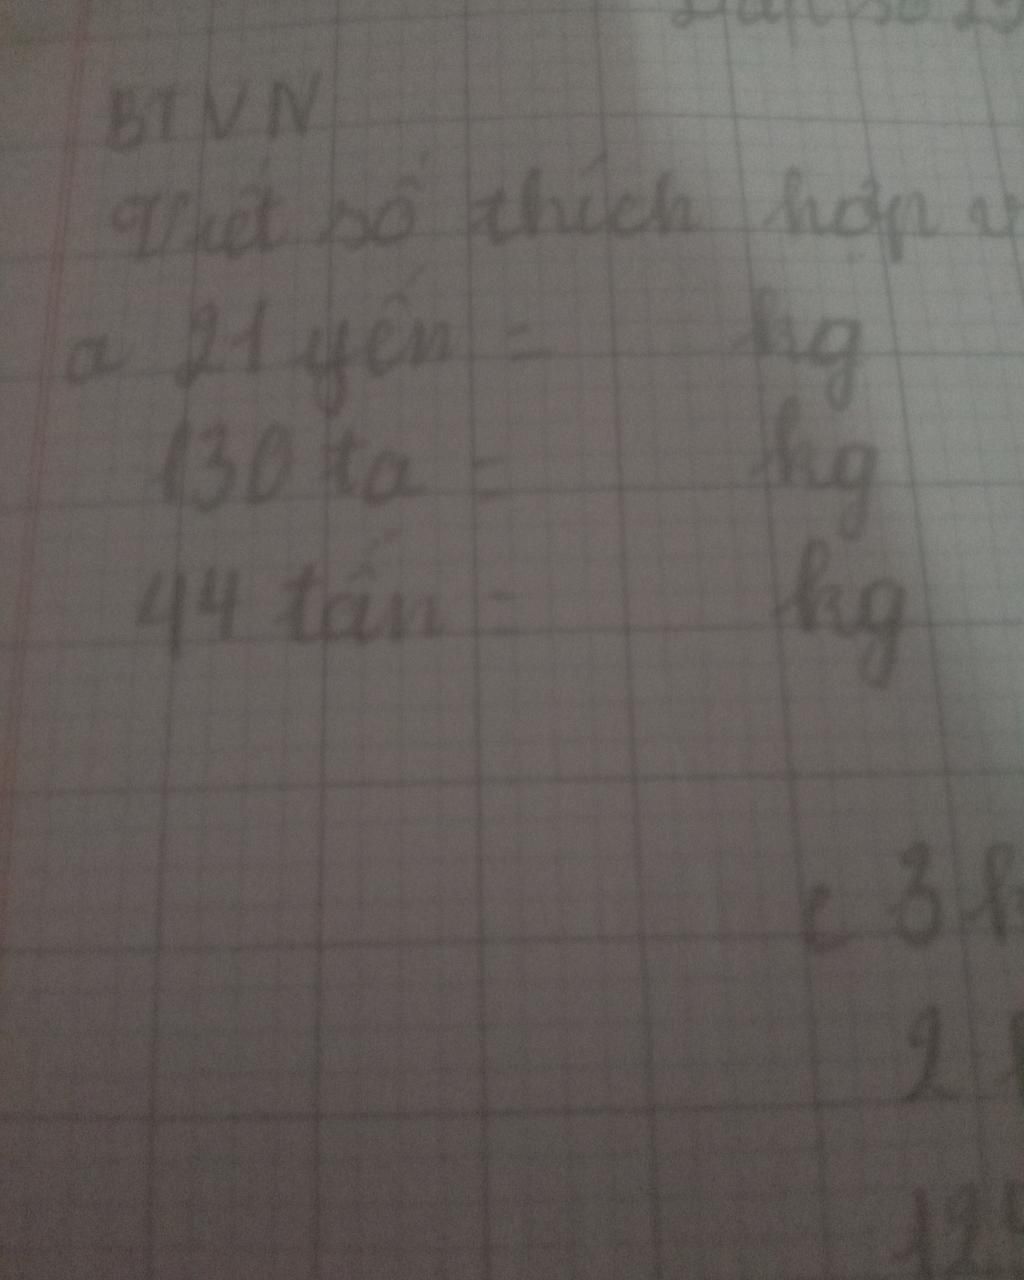 BTVN
Viết số thích hợp v
a 21 yến = kg
130 tạ = kg
44 tấn = kg
c 3
2
12